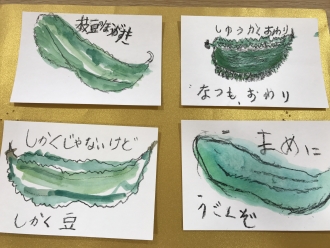 しゅうかくおわり
なつも、おわり
しかくじゃないけど
しかく豆
まめに
うごくぞ